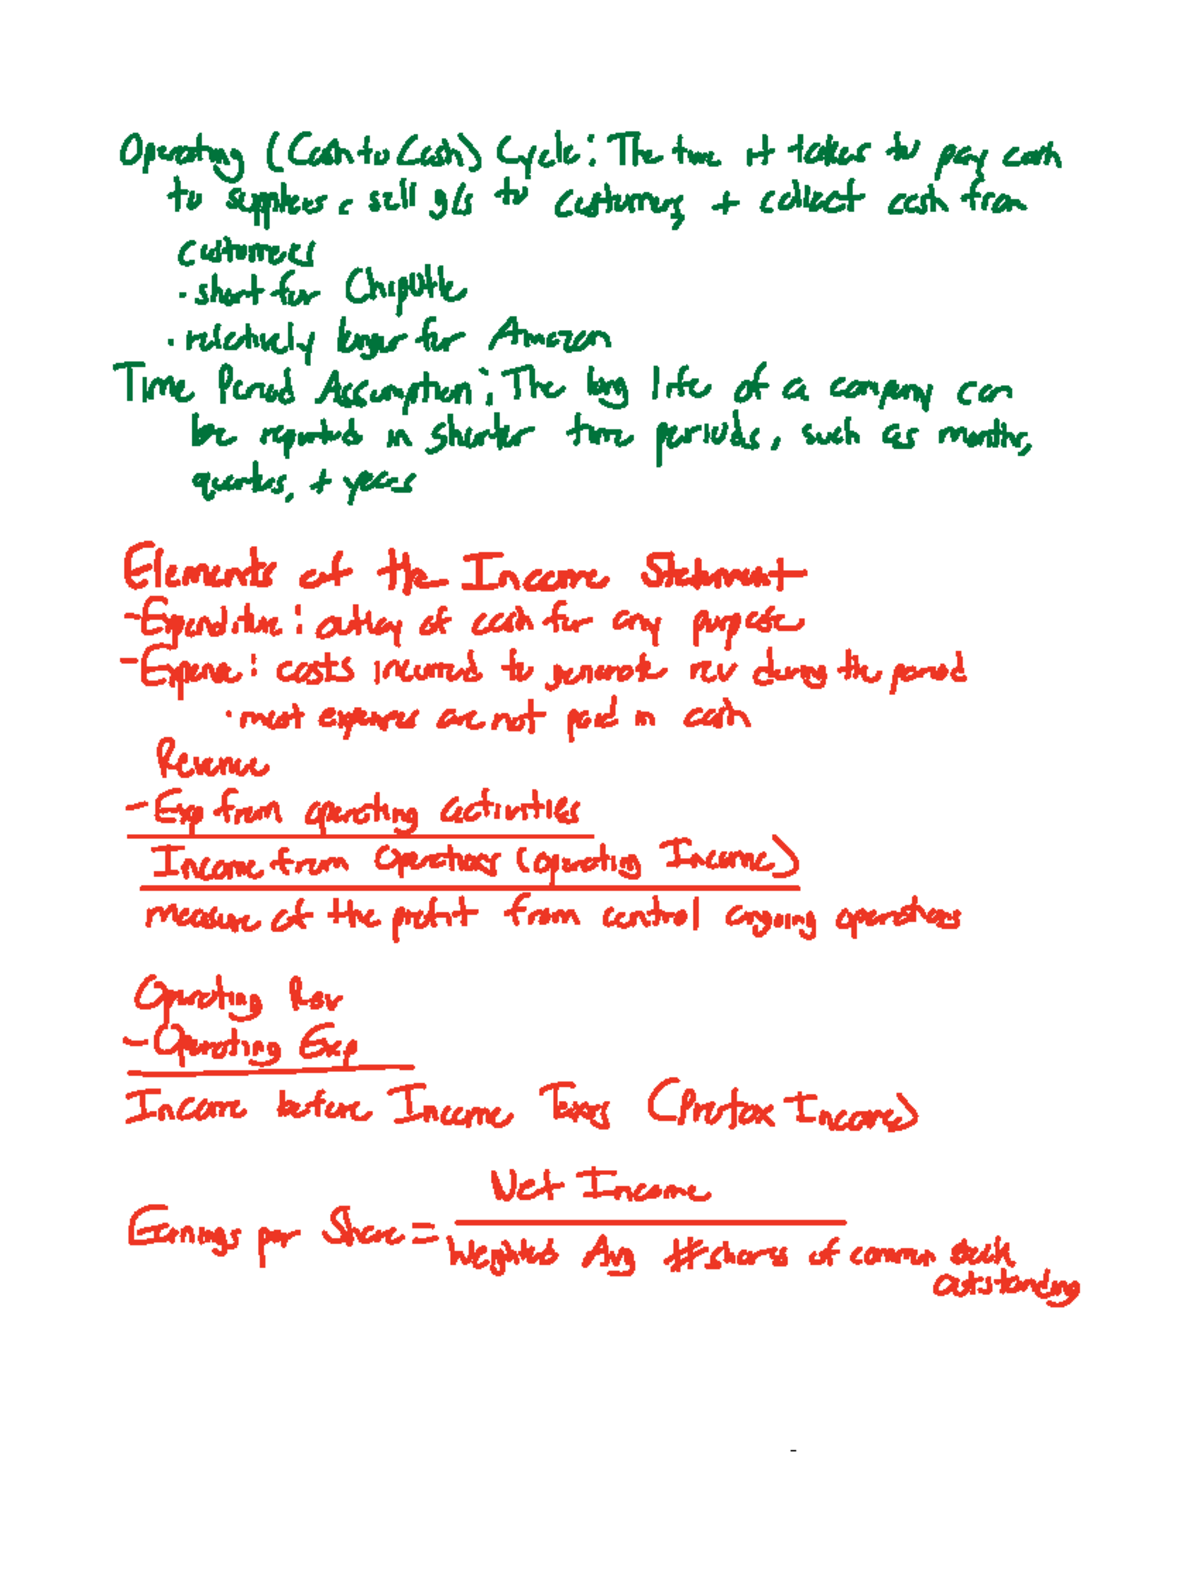 Operating (Cash to Cash) Cycle: The time it takes to pay cash
to suppliers, sell g/s to customers, + collect cash from
customers
· short for Chipotle
· relatively longer for Amazon
Time Period Assumption: The long life of a company can
be reported in shorter time periods, such as months,
quarters, + years
Elements of the Income Statement
- Expenditure: outlay of cash for any purpose
- Expense: costs incurred to generate rev during the period
· most expenses are not paid in cash
Revenue
- Exp from operating activities
Income from Operations (operating Income)
measure of the profit from central ongoing operations
Operating Rev
- Operating Exp
Income before Income Taxes (Pretax Income)
Net Income
Earnings per Share =
Weighted Avg # shares of common stock
outstanding
-